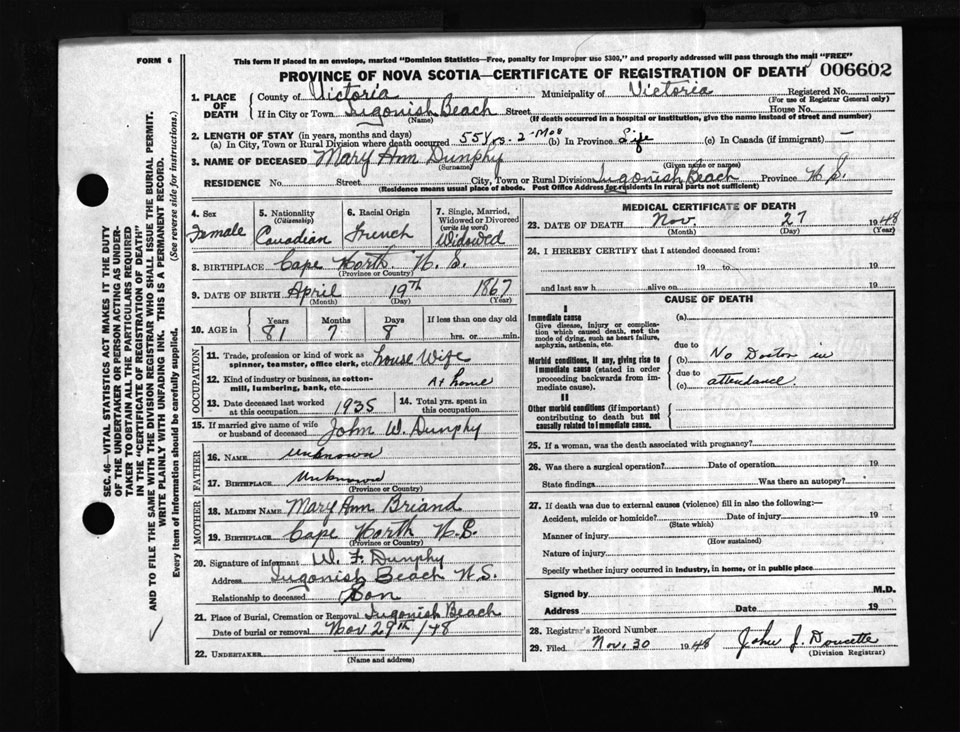 FORM 6
This form if placed in an envelope, marked "Dominion Statistics—Free, penalty for improper use $300," and properly addressed will pass through the mail "FREE"
PROVINCE OF NOVA SCOTIA—CERTIFICATE OF REGISTRATION OF DEATH 006602
1. PLACE OF DEATH County of Victoria Municipality of Victoria Registered No.
(For use of Registrar General only)
If in City or Town Ingonish Beach Street House No.
(Name) (If death occurred in a hospital or institution, give the name instead of street and number)
2. LENGTH OF STAY (in years, months and days)
(a) In City, Town or Rural Division where death occurred 55 Yrs. 2-Mos (b) In Province Life (c) In Canada (if immigrant) —
3. NAME OF DECEASED Mary Ann Dunphy
(Surname) (Given name or names)
RESIDENCE No. Street City, Town or Rural Division Ingonish Beach Province N S.
(Residence means usual place of abode. Post Office Address for residents in rural parts not sufficient)
4. Sex Female
5. Nationality (Citizenship) Canadian
6. Racial Origin French
7. Single, Married, Widowed or Divorced (write the word) Widowed
8. BIRTHPLACE Cape North N. S.
(Province or Country)
9. DATE OF BIRTH April 19th 1867
(Month) (Day) (Year)
10. AGE in Years Months Days If less than one day old
81 7 8 hrs. or min.
OCCUPATION
11. Trade, profession or kind of work as spinner, teamster, office clerk, etc. house Wife
12. Kind of industry or business, as cotton-mill, lumbering, bank, etc. At home
13. Date deceased last worked at this occupation 1935
14. Total yrs. spent in this occupation
15. If married give name of wife or husband of deceased John W. Dunphy
FATHER
16. NAME unknown
17. BIRTHPLACE Unknown
(Province or Country)
MOTHER
18. MAIDEN NAME Mary Ann Briand
19. BIRTHPLACE Cape North N.S.
(Province or Country)
20. Signature of informant W. F. Dunphy
Address Ingonish Beach N.S.
Relationship to deceased Son
21. Place of Burial, Cremation or Removal Ingonish Beach
Date of burial or removal Nov. 29th/48
22. UNDERTAKER
(Name and address)
MEDICAL CERTIFICATE OF DEATH
23. DATE OF DEATH Nov. 27 1948
(Month) (Day) (Year)
24. I HEREBY CERTIFY that I attended deceased from:
19 to 19
and last saw h alive on 19
CAUSE OF DEATH
I
Immediate cause
Give disease, injury or complication which caused death, not the mode of dying, such as heart failure, asphyxia, asthenia, etc.
(a)
due to
Morbid conditions, if any, giving rise to immediate cause (stated in order proceeding backwards from immediate cause).
(b) No Doctor in
due to
(c) attendance.
II
Other morbid conditions (if important) contributing to death but not causally related to immediate cause.
25. If a woman, was the death associated with pregnancy?
26. Was there a surgical operation? Date of operation 19
State findings Was there an autopsy?
27. If death was due to external causes (violence) fill in also the following:—
Accident, suicide or homicide? Date of injury 19
(State which)
Manner of injury
(How sustained)
Nature of injury
Specify whether injury occurred in industry, in home, or in public place
Signed by M.D.
Address Date 19
28. Registrar's Record Number
29. Filed Nov. 30 1948 John J. Doucette
(Division Registrar)
SEC. 46—VITAL STATISTICS ACT MAKES IT THE DUTY
OF THE UNDERTAKER OR PERSON ACTING AS UNDER-
TAKER TO OBTAIN ALL THE PARTICULARS REQUIRED
IN THE "CERTIFICATE OF REGISTRATION OF DEATH"
AND TO FILE THE SAME WITH THE DIVISION REGISTRAR WHO SHALL ISSUE THE BURIAL PERMIT.
WRITE PLAINLY WITH UNFADING INK. THIS IS A PERMANENT RECORD.
Every item of information should be carefully supplied. (See reverse side for instructions.)